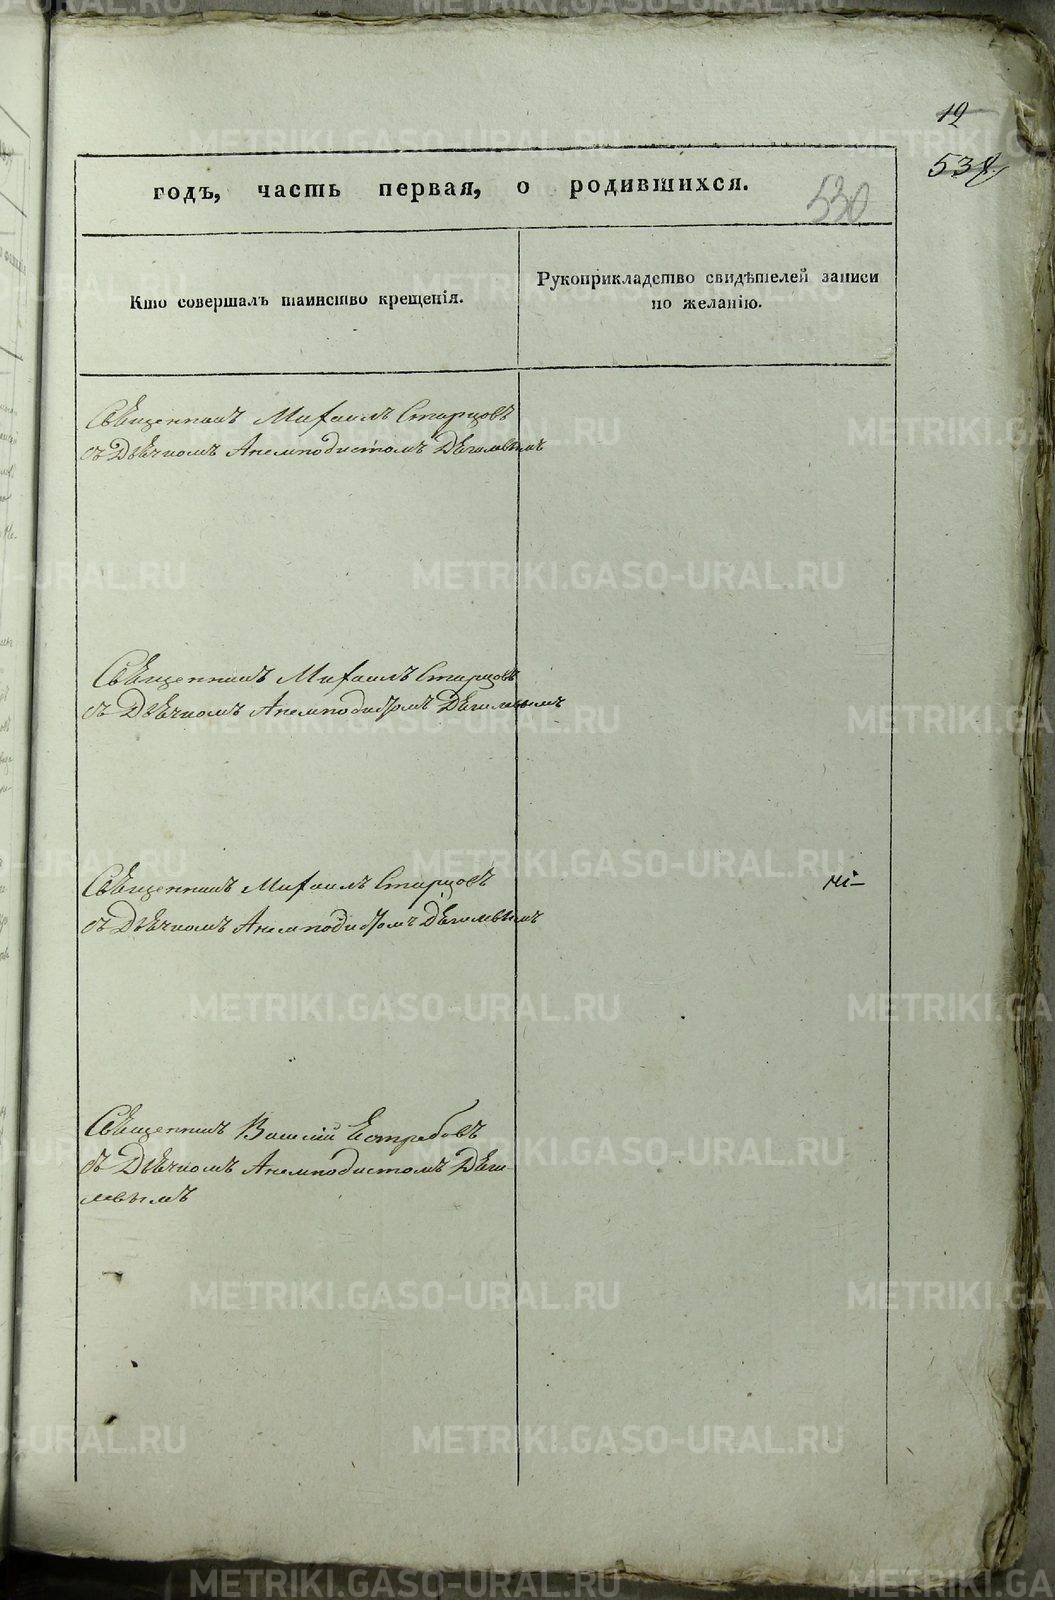 12
538
годъ, часть первая, о родившихся.
530
Кто совершалъ таинство крещенія.
Рукоприкладство свидѣтелей записи
по желанію.
Священникъ Михаилъ Старцовъ
съ Дьячкомъ Анемподистомъ Дягилевымъ
Священникъ Михаилъ Старцовъ
съ Дьячкомъ Анемподистомъ Дягилевымъ
Священникъ Михаилъ Старцовъ
съ Дьячкомъ Анемподистомъ Дягилевымъ
Священникъ Василій Ястребовъ
съ Дьячкомъ Анемподистомъ Дяги-
левымъ
METRIKI.GASO-URAL.RU